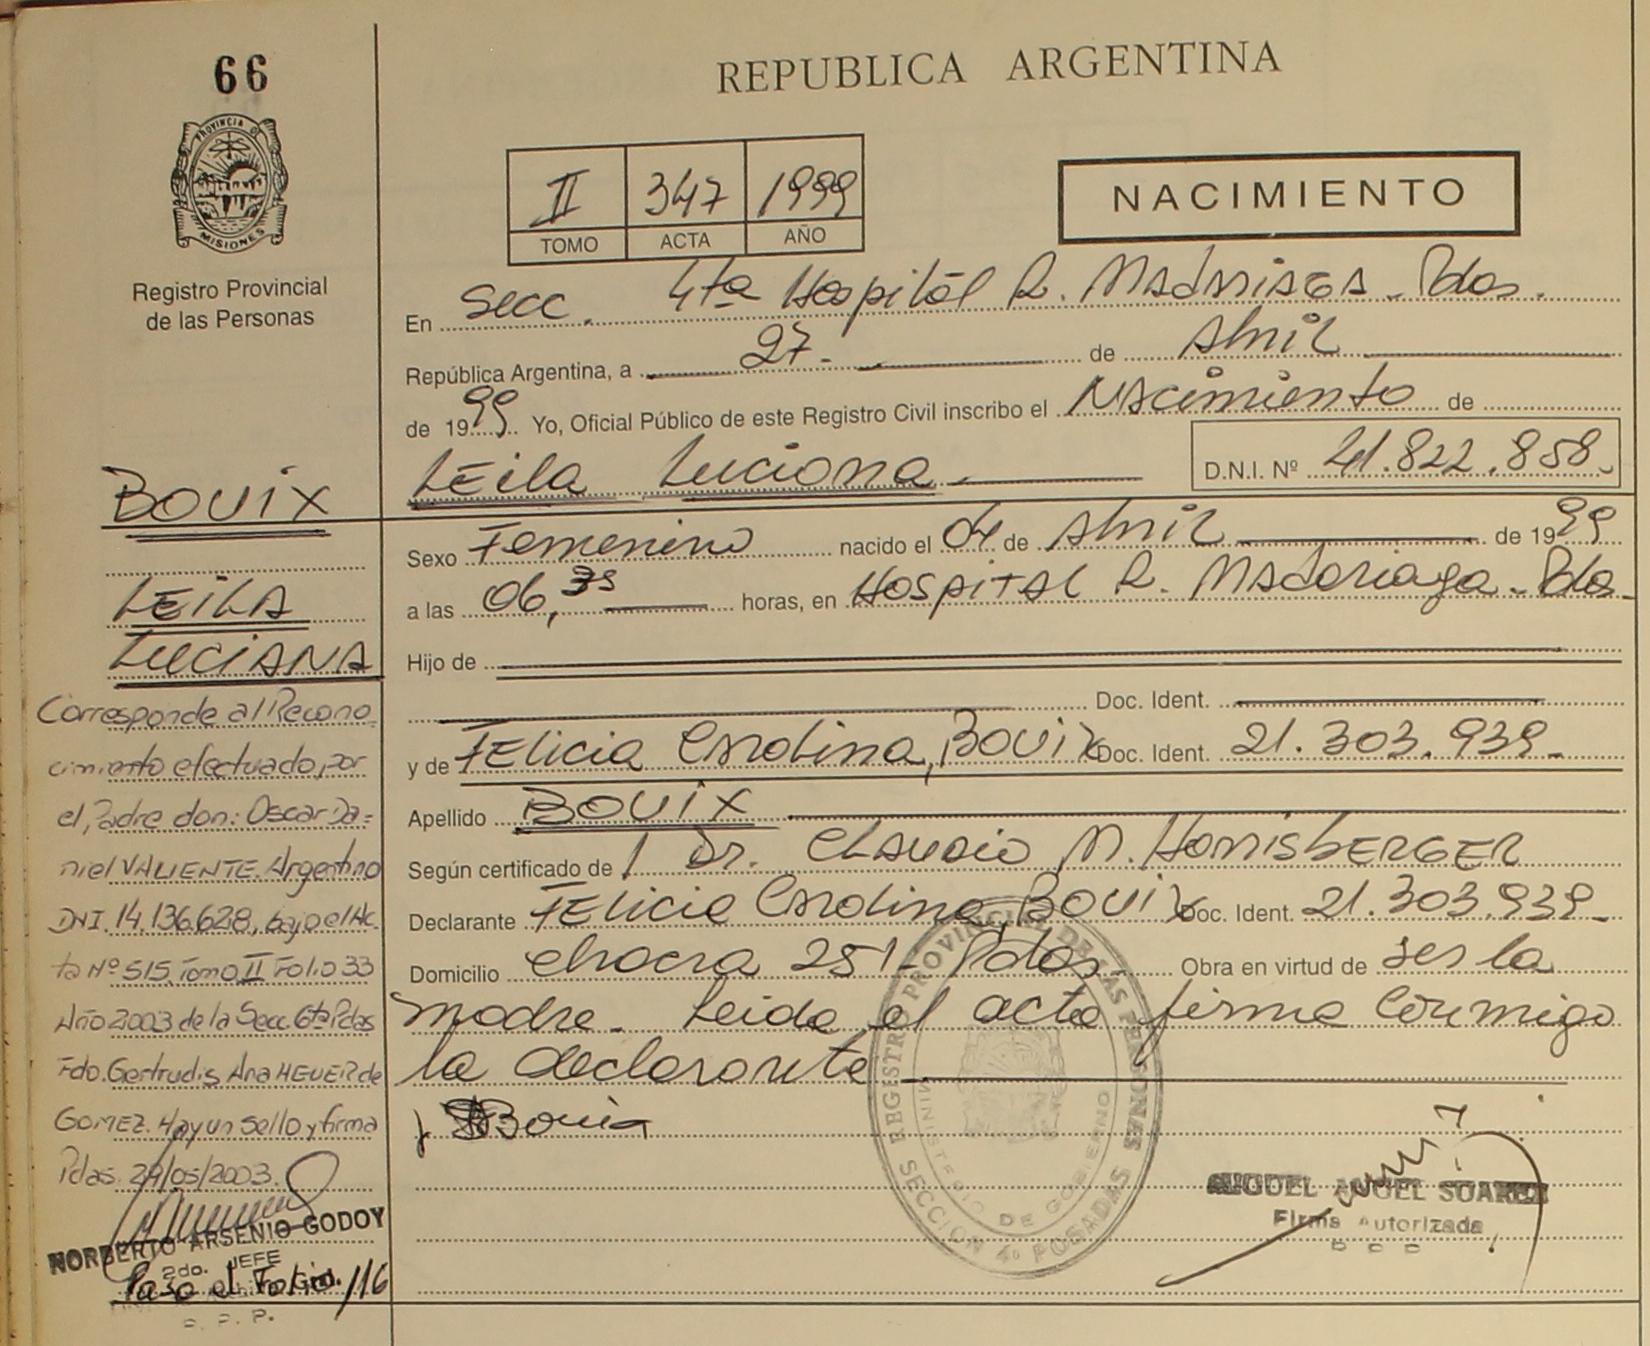 66
PROVINCIA DE
MISIONES
Registro Provincial
de las Personas
REPUBLICA ARGENTINA
II 347 1999
TOMO ACTA AÑO
NACIMIENTO
En Secc. 4ta Hospital R. Madariaga - Pdas.
República Argentina, a 27.- de Abril
de 1999. Yo, Oficial Público de este Registro Civil inscribo el Nacimiento de
Leila Luciana D.N.I. Nº 41.822.858.
Sexo Femenino nacido el 04 de Abril de 1999
a las 06,35 horas, en Hospital R. Madariaga - Pdas
Hijo de
Doc. Ident.
y de Felicia Carolina, BOUIX Doc. Ident. 21.303.939.
Apellido BOUIX
Según certificado de Dr. Claudio M.
Declarante Felicia Carolina, BOUIX Doc. Ident. 21.303.939.
Domicilio Chacra 251 - Pdas. Obra en virtud de ser la
madre. Leida el acta firma conmigo
la declarante
Bouix
REGISTRO PROVINCIAL DE LAS PERSONAS
MINISTERIO DE GOBIERNO
SECCION 4ª POSADAS
MIGUEL ANGEL SUAREZ
Firma Autorizada
BOUIX
LEILA
LUCIANA
Corresponde al Recono
cimiento efectuado, por
el, Padre don: Oscar Da=
niel VALIENTE. Argentino
DNI. 14.136.628, bajo el Ac
ta Nº 515, Tomo II Folio 33
Año 2003 de la Secc. 6ta Pdas
Fdo. Gertrudis Ana HEUER de
GOMEZ. Hay un sello y firma
Pdas. 29/05/2003.
NORBERTO ARSENIO GODOY
2do. JEFE
Paso el Folio 116